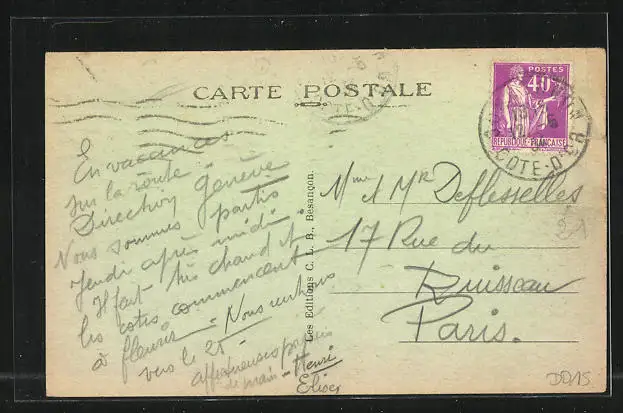 CARTE POSTALE
POSTES
40c
REPUBLIQUE-FRANCAISE
COTE-D'OR
En vacances
sur la route
Direction Genève
Nous sommes partis
jeudi après midi
Il fait très chaud et
les cotes commencent
à fleurir - Nous rentrons
vers le 25 -
affectueuses
de main - Henri
Les Editions C. L. B., Besançon.
Mme & Mr Deflesselles
17 Rue du
Ruisseau
Paris.
DD15